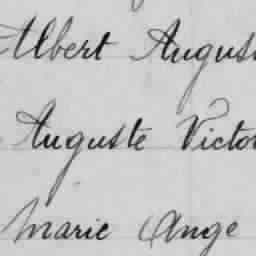 Albert August
Auguste Victor
Marie Ange